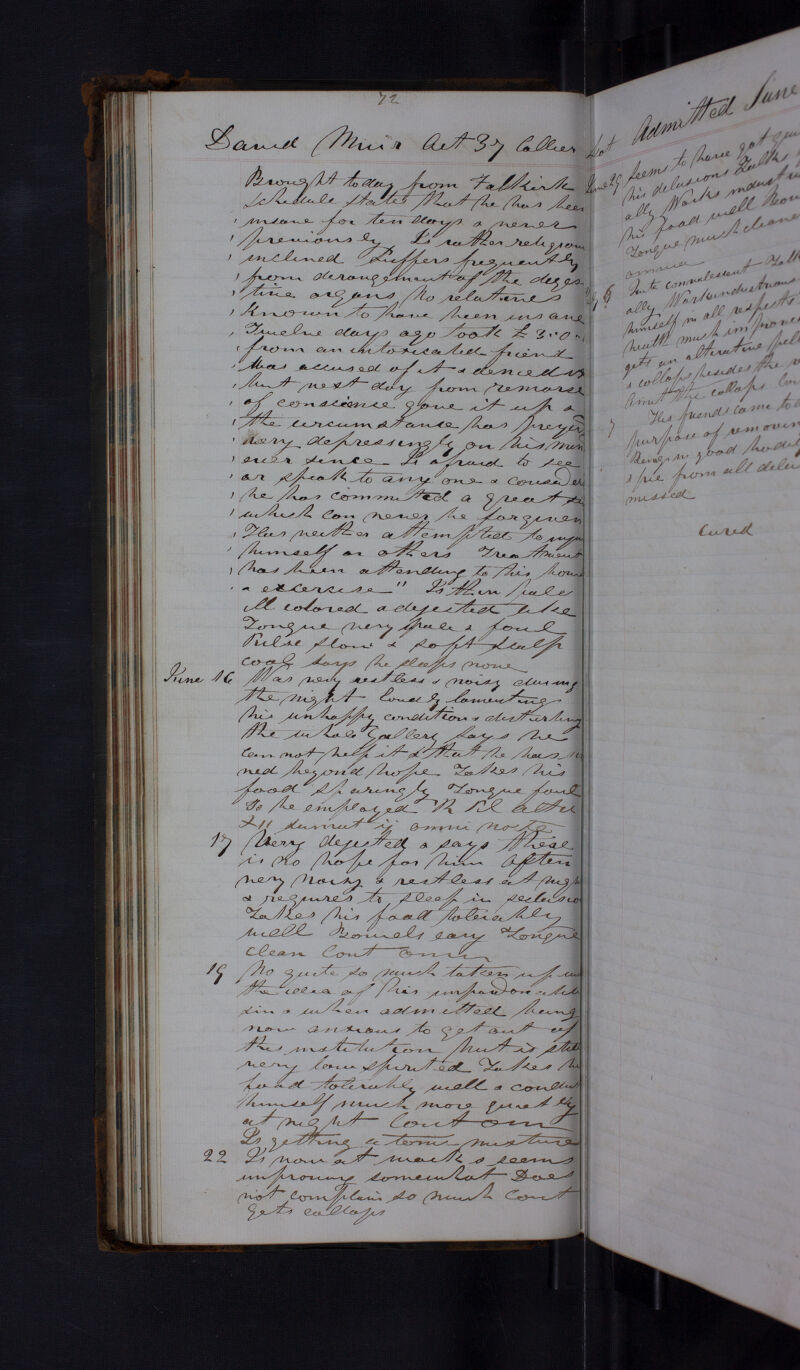 72
David Muir Aet 37 Collier
Brought today from Falkirk
Schedule states that he has been
" insane for ten days & never
" previously. Is rather religious
" inclined Suffers frequently
" from derangement of the diges
" tive organs, No relatives
" known to have been insane
" Twelve days ago took £3..0..
" from an intoxicated friend
" Was accused of it & denied it
" but next day from remorse
" of conscience gave it up &
" the circumstance has preyed
" very depressingly on his mind
" ever since Is afraid to see
" or speak to any one & considers
" he has committed a great sin
" which can never be forgiven
" Has neither attempted to injure
" himself or others Treatment
" has been attending to his bowels
" & excersise" Is thin pale
ill colored & dejected like
Tongue very pale & foul
Pulse slow & soft Scalp
cool Says he sleeps none
June 16 Was very restless & noisy during
the night loudly lamenting
his unhappy condition & disturbing
the whole Gallery Says he
cannot help it & that he has sin
ned beyond hope Takes his
food sparingly Tongue foul
To be employed Rx Pil
sumat ij omni nocte
17 Very dejected & says there
is no hope for him Often
very noisy & restless at night
& requires to sleep in seclusion
Takes his food tolerably
well Bowels easy Tongue
clean Cont omn
19 No quite so much taken up with
the idea of his unpardonable
sin & when admitted being
now anxious to get out of
the institution but is still
very low spirited Takes his
food tolerably well & conducts
himself much more quietly
at night Cont omn
Is getting a tonic mixture
22 Is now at work & seems
improving somewhat Does
not complain so much Cont
gets collops
Admitted June
June 29 Seems to have got
his delusions Talks
ally Works industri
his food well Bow
Tongue much cleaner
omnia
July 6 Quite convalescent Talk
ally Works industrious
himself in all respects
health much improved
gets an alterative pill
& collops besides the
Omit the collops
7 His friends came to
purpose of removing
Being in good bodily
& free from all delu
missed
Cured